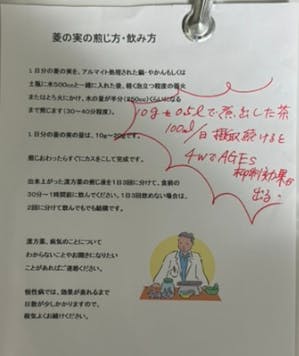 菱の実の煎じ方・飲み方
1日分の菱の実を、アルマイト処理された鍋・やかんもしくは
土瓶に水500ccと一緒に入れた後、軽く泡立つ程度の弱火
またはとろ火にかけ、水の量が半分(250cc)くらいになる
まで煎じます(30～40分程度)。
1日分の菱の実の量は、10g～20gです。
煎じおわったらすぐにカスをこして完成です。
出来上がった漢方薬の煎じ液を1日3回に分けて、食前の
30分～1時間前に飲んでください。1日3回飲めない場合は、
2回に分けて飲んでもでも結構です。
漢方薬、病気のことについて
わからないことやお聞きになりたい
ことがあればご連絡ください。
慢性病では、効果が表れるまで
日数が少しかかりますので、
根気よくお続けください。
10gを0.5lで煮出した茶
100ml/日 摂取続けると
4wでAGEs
抑制効果
出る。